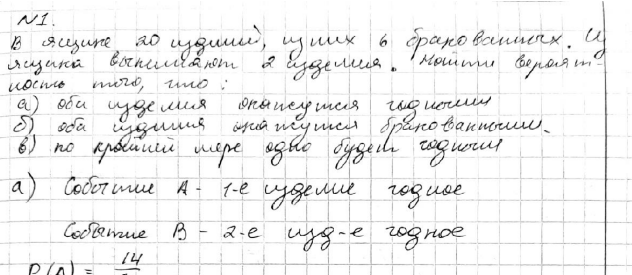 N1.
В ящике 20 изделий, из них 6 бракованных. Из
ящика вынимают 2 изделия. Найти вероят-
ность того, что:
а) оба изделия окажутся годными
б) оба изделия окажутся бракованными.
в) по крайней мере одно будет годным
а) Событие А - 1-е изделие годное
Событие В - 2-е изд-е годное
P(A) = 14